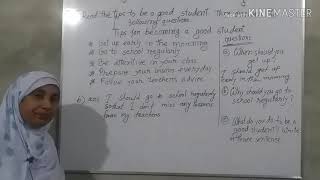 Read the tips to be a good student then
following questions
Tips for becoming a good student
* Get up early in the morning
* Go to school regularly
* Be attentive in your class
* Prepare your lessons everyday.
* Follow your teachers advice.
question:
a) When should you
get up?
I should get up
early in the morning.
b) Why should you go to
school regularly?
b) ans: I should go to school regularly
so that I don't miss any lessons
from my teachers
c) What do you do to be a
good student? Write
in three sentences
KINEMASTER